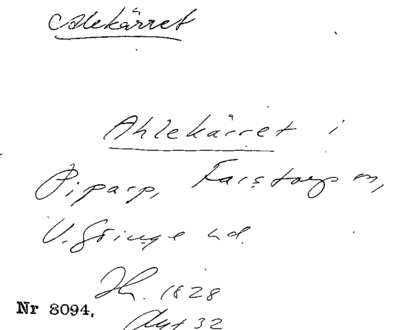 Alekärret
Ahlekärret i
Piparp, Farstorps sn,
V. Göinge hd.
Hh. 1828
Nr 8094.
Akt 32